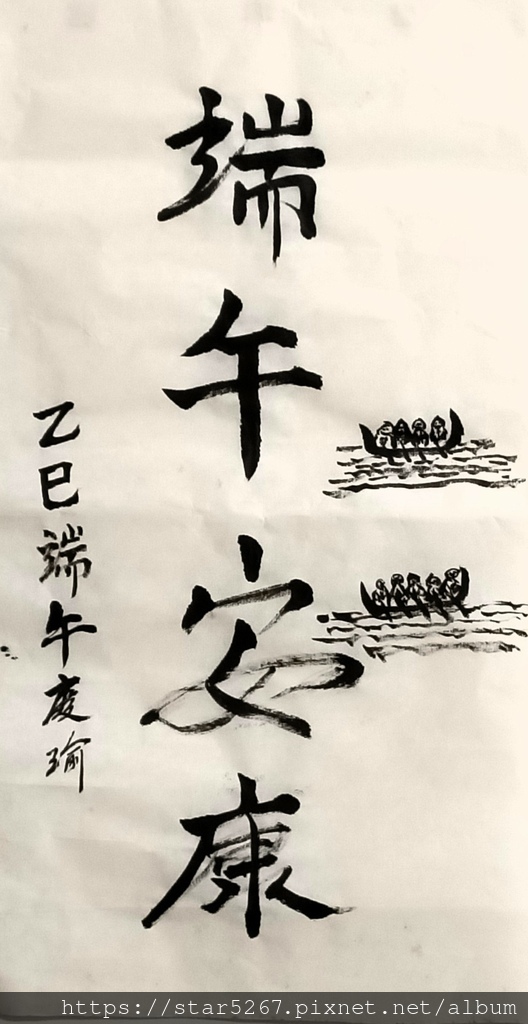 端午安康
乙巳端午慶瑜
https://star5267.pixnet.net/album